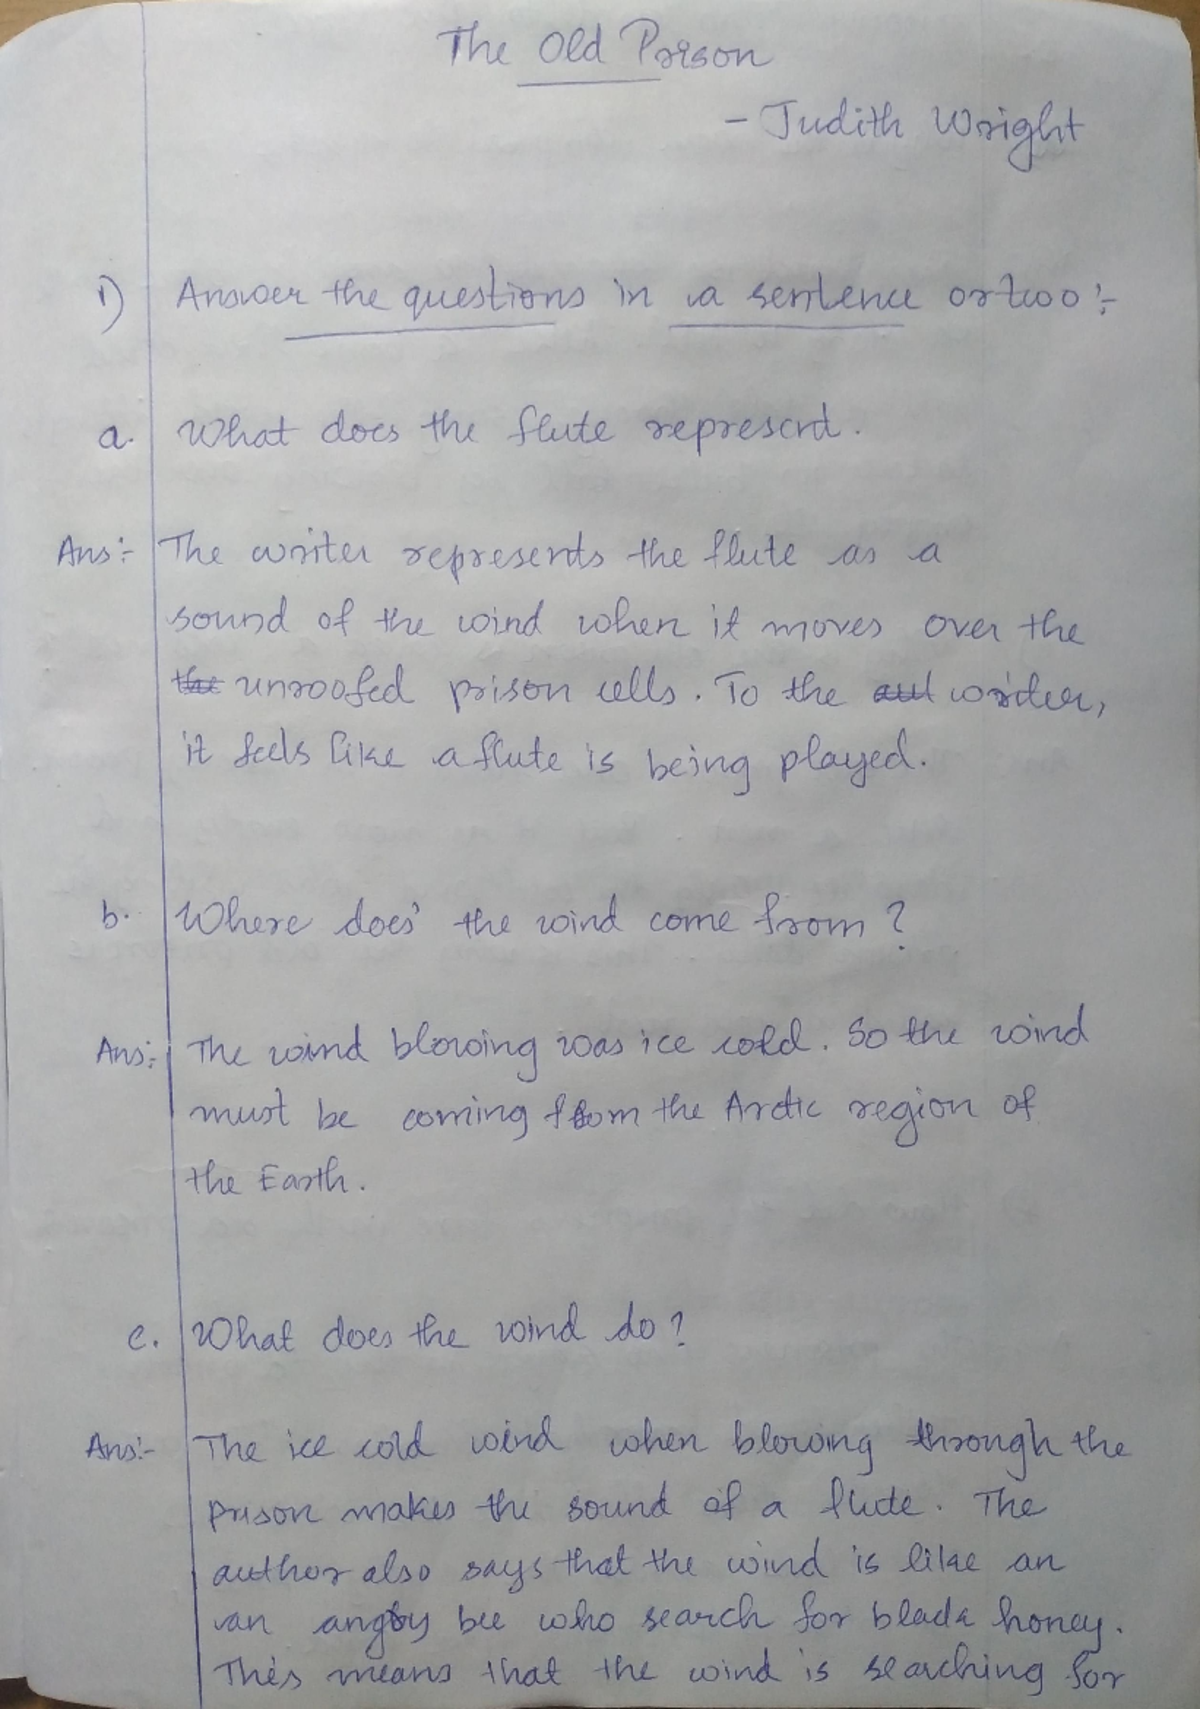 The Old Prison
- Judith Wright
1) Answer the questions in a sentence or two :-
a. What does the flute represent.
Ans:- The writer represents the flute as a
sound of the wind when it moves over the
the unroofed prison cells. To the aut writer,
it feels like a flute is being played.
b. Where does the wind come from?
Ans:- The wind blowing was ice cold. So the wind
must be coming from the Arctic region of
the Earth.
c. What does the wind do?
Ans:- The ice cold wind when blowing through the
prison makes the sound of a flute. The
author also says that the wind is like an
an angry bee who search for black honey.
This means that the wind is searching for